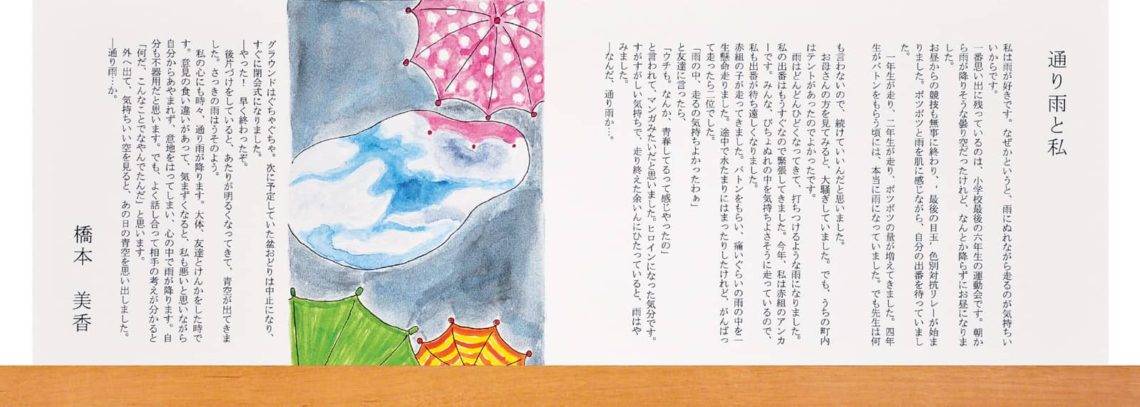 通り雨と私
私は雨が好きです。なぜかというと、雨にぬれながら走るのが気持ちい
いからです。
一番思い出に残っているのは、小学校最後の六年生の運動会です。朝か
ら雨が降りそうな曇り空だったけれど、なんとか降らずにお昼になりま
お昼からの競技も無事に終わり、、最後の目玉 色別対抗リレーが始ま
りました。ポツポツと雨を肌に感じながら、自分の出番を待っていまし
た。
一年生が走り、二年生が走り、ポツポツの量が増えてきました。四年
生がバトンをもらう頃には、本当に雨になっていました。でも先生は何
も言わないので、続けていいんだと思いました。
お母さんの方を見てみると、大騒ぎしていました。でも、うちの町内
はテントがあったのでよかったです。
雨はどんどんひどくなってきて、打ちつけるような雨になりました。
私の出番はもうすぐなので緊張してきました。今年、私は赤組のアンカ
ーです。みんな、びちょぬれの中を気持ちよさそうに走っているので、
私も出番が待ち遠しくなりました。
赤組の子が走ってきました。バトンをもらい、痛いぐらいの雨の中を一
生懸命走りました。途中で水たまりにはまったりしたけれど、がんばっ
て走ったら二位でした。
「雨の中、走るの気持ちよかったわぁ」
と友達に言ったら、
「ウチも。なんか、青春してるって感じやったの」
と言われて、マンガみたいだと思いました。ヒロインになった気分です。
すがすがしい気持ちで、走り終えた余いんにひたっていると、雨はや
みました。
―なんだ、通り雨か…。
グラウンドはぐちゃぐちゃ。次に予定していた盆おどりは中止になり、
すぐに閉会式になりました。
―やった! 早く終わったぞ。
後片づけをしていると、あたりが明るくなってきて、青空が出てきま
した。さっきの雨はうそのよう。
私の心にも時々、通り雨が降ります。大体、友達とけんかをした時で
す。意見の食い違いがあって、気まずくなると、私も悪いと思いながら
自分からあやまれず、意地をはってしまい、心の中で雨が降ります。自
分も不器用だと思います。でも、よく話し合って相手の考えが分かると
「何だ、こんなことでなやんでたんだ」と思います。
外へ出て、気持ちいい空を見ると、あの日の青空を思い出しました。
―通り雨…か。
橋本 美香